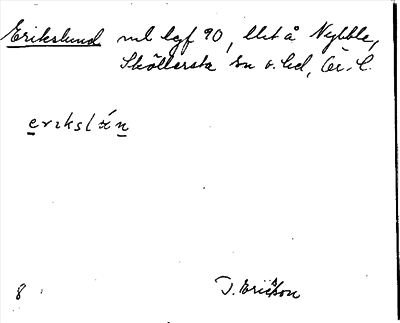 Erikslund ml lgf 90, llet å Nybble,
Sköllersta sn o. hd, Ör. l.
erikslán
8 J. Ericson